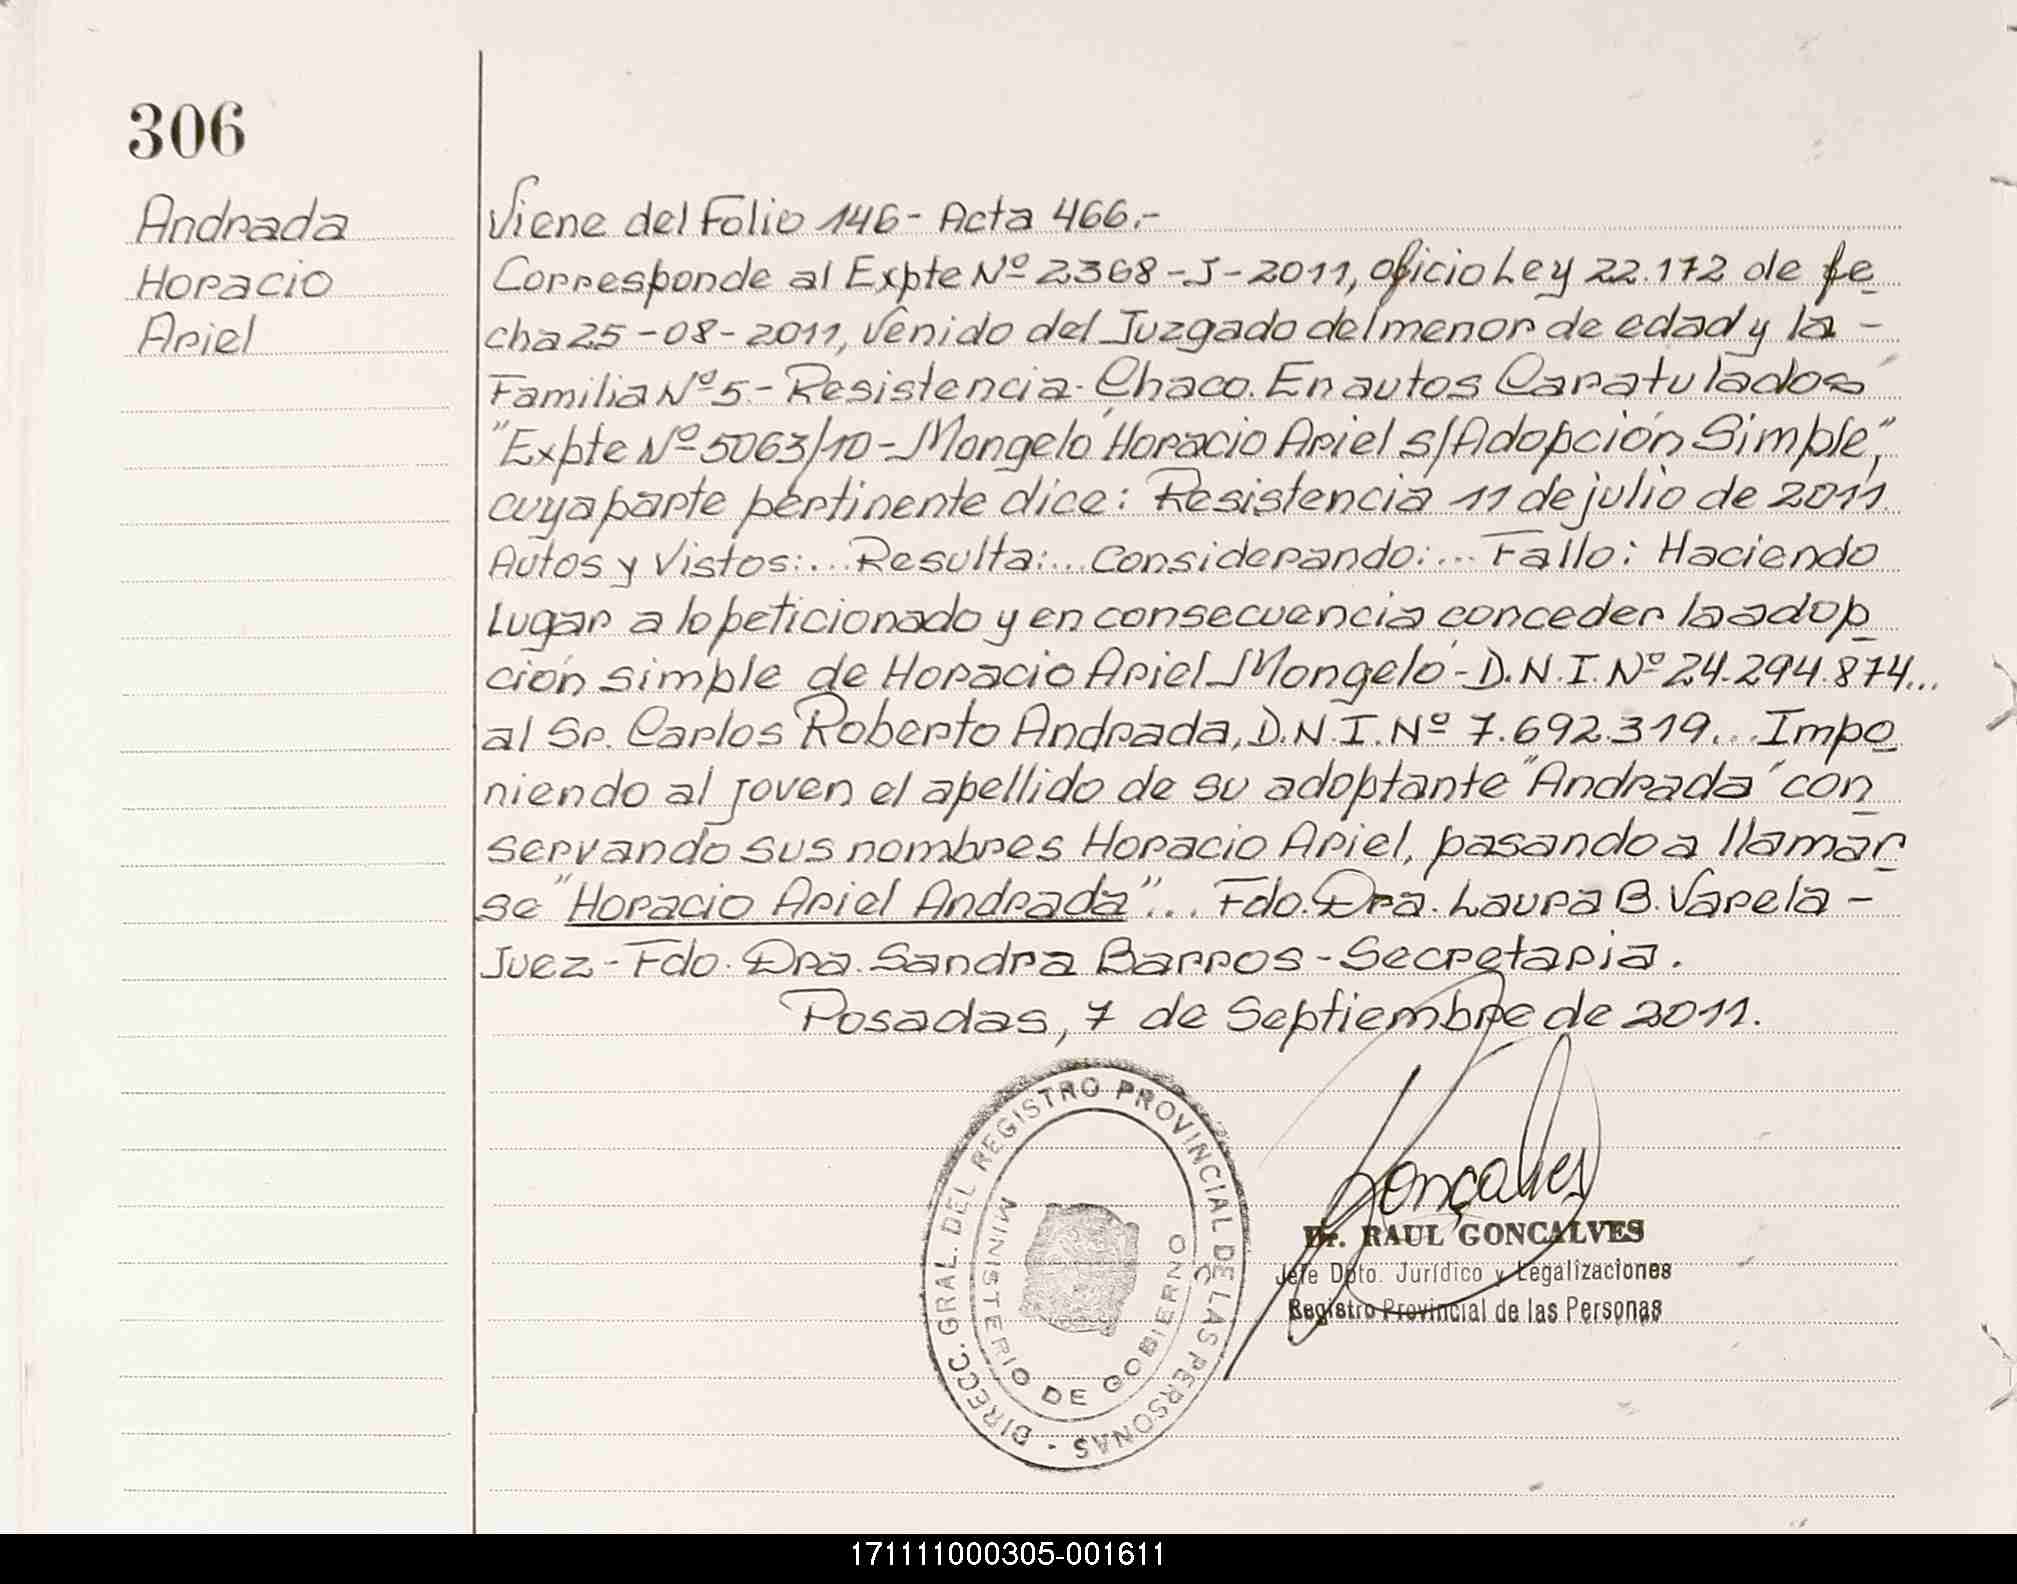 306
Andrada
Horacio
Ariel
Viene del Folio 146- Acta 466.-
Corresponde al Expte Nº 2368-J-2011, oficio Ley 22.172 de fe
cha 25-08-2011, venido del Juzgado del menor de edad y la -
Familia Nº5.- Resistencia- Chaco. En autos Caratulados
"Expte Nº 5063/10-Mongeló Horacio Ariel s/Adopción Simple",
cuya parte pertinente dice: Resistencia 11 de julio de 2011.
Autos y Vistos:...Resulta:...Considerando:... Fallo: Haciendo
Lugar a lo peticionado y en consecuencia conceder la adop
ción simple de Horacio Ariel Mongeló-D.N.I. Nº 24.294.874...
al Sr. Carlos Roberto Andrada, D.N.I. Nº 7.692.319... Impo
niendo al joven el apellido de su adoptante "Andrada" con
servando sus nombres Horacio Ariel, pasando a llamar
se "Horacio Ariel Andrada"... Fdo. Dra. Laura B. Varela -
Juez - Fdo. Dra. Sandra Barros - Secretaria.
Posadas, 7 de Septiembre de 2011.
DIRECC. GRAL. DEL REGISTRO PROVINCIAL DE LAS PERSONAS -
MINISTERIO DE GOBIERNO
Gonçalves
Dr. RAUL GONCALVES
Jefe Dpto. Jurídico y Legalizaciones
Registro Provincial de las Personas
171111000305-001611